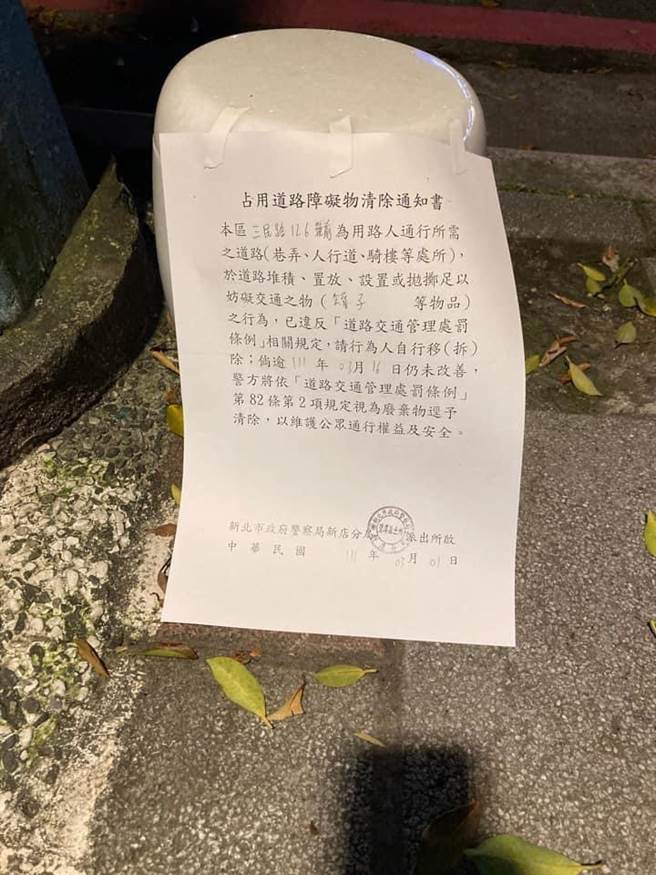 占用道路障礙物清除通知書
本區三民路126號前為用路人通行所需
之道路(巷弄、人行道、騎樓等處所),
於道路堆積、置放、設置或拋擲足以
妨礙交通之物(罐子 等物品)
之行為,已違反「道路交通管理處罰
條例」相關規定,請行為人自行移(拆)
除;倘逾111年03月16日仍未改善,
警方將依「道路交通管理處罰條例」
第82條第2項規定視為廢棄物逕予
清除,以維護公眾通行權益及安全。
新北市政府警察局新店分局 派出所啟
中華民國 111年03月01日